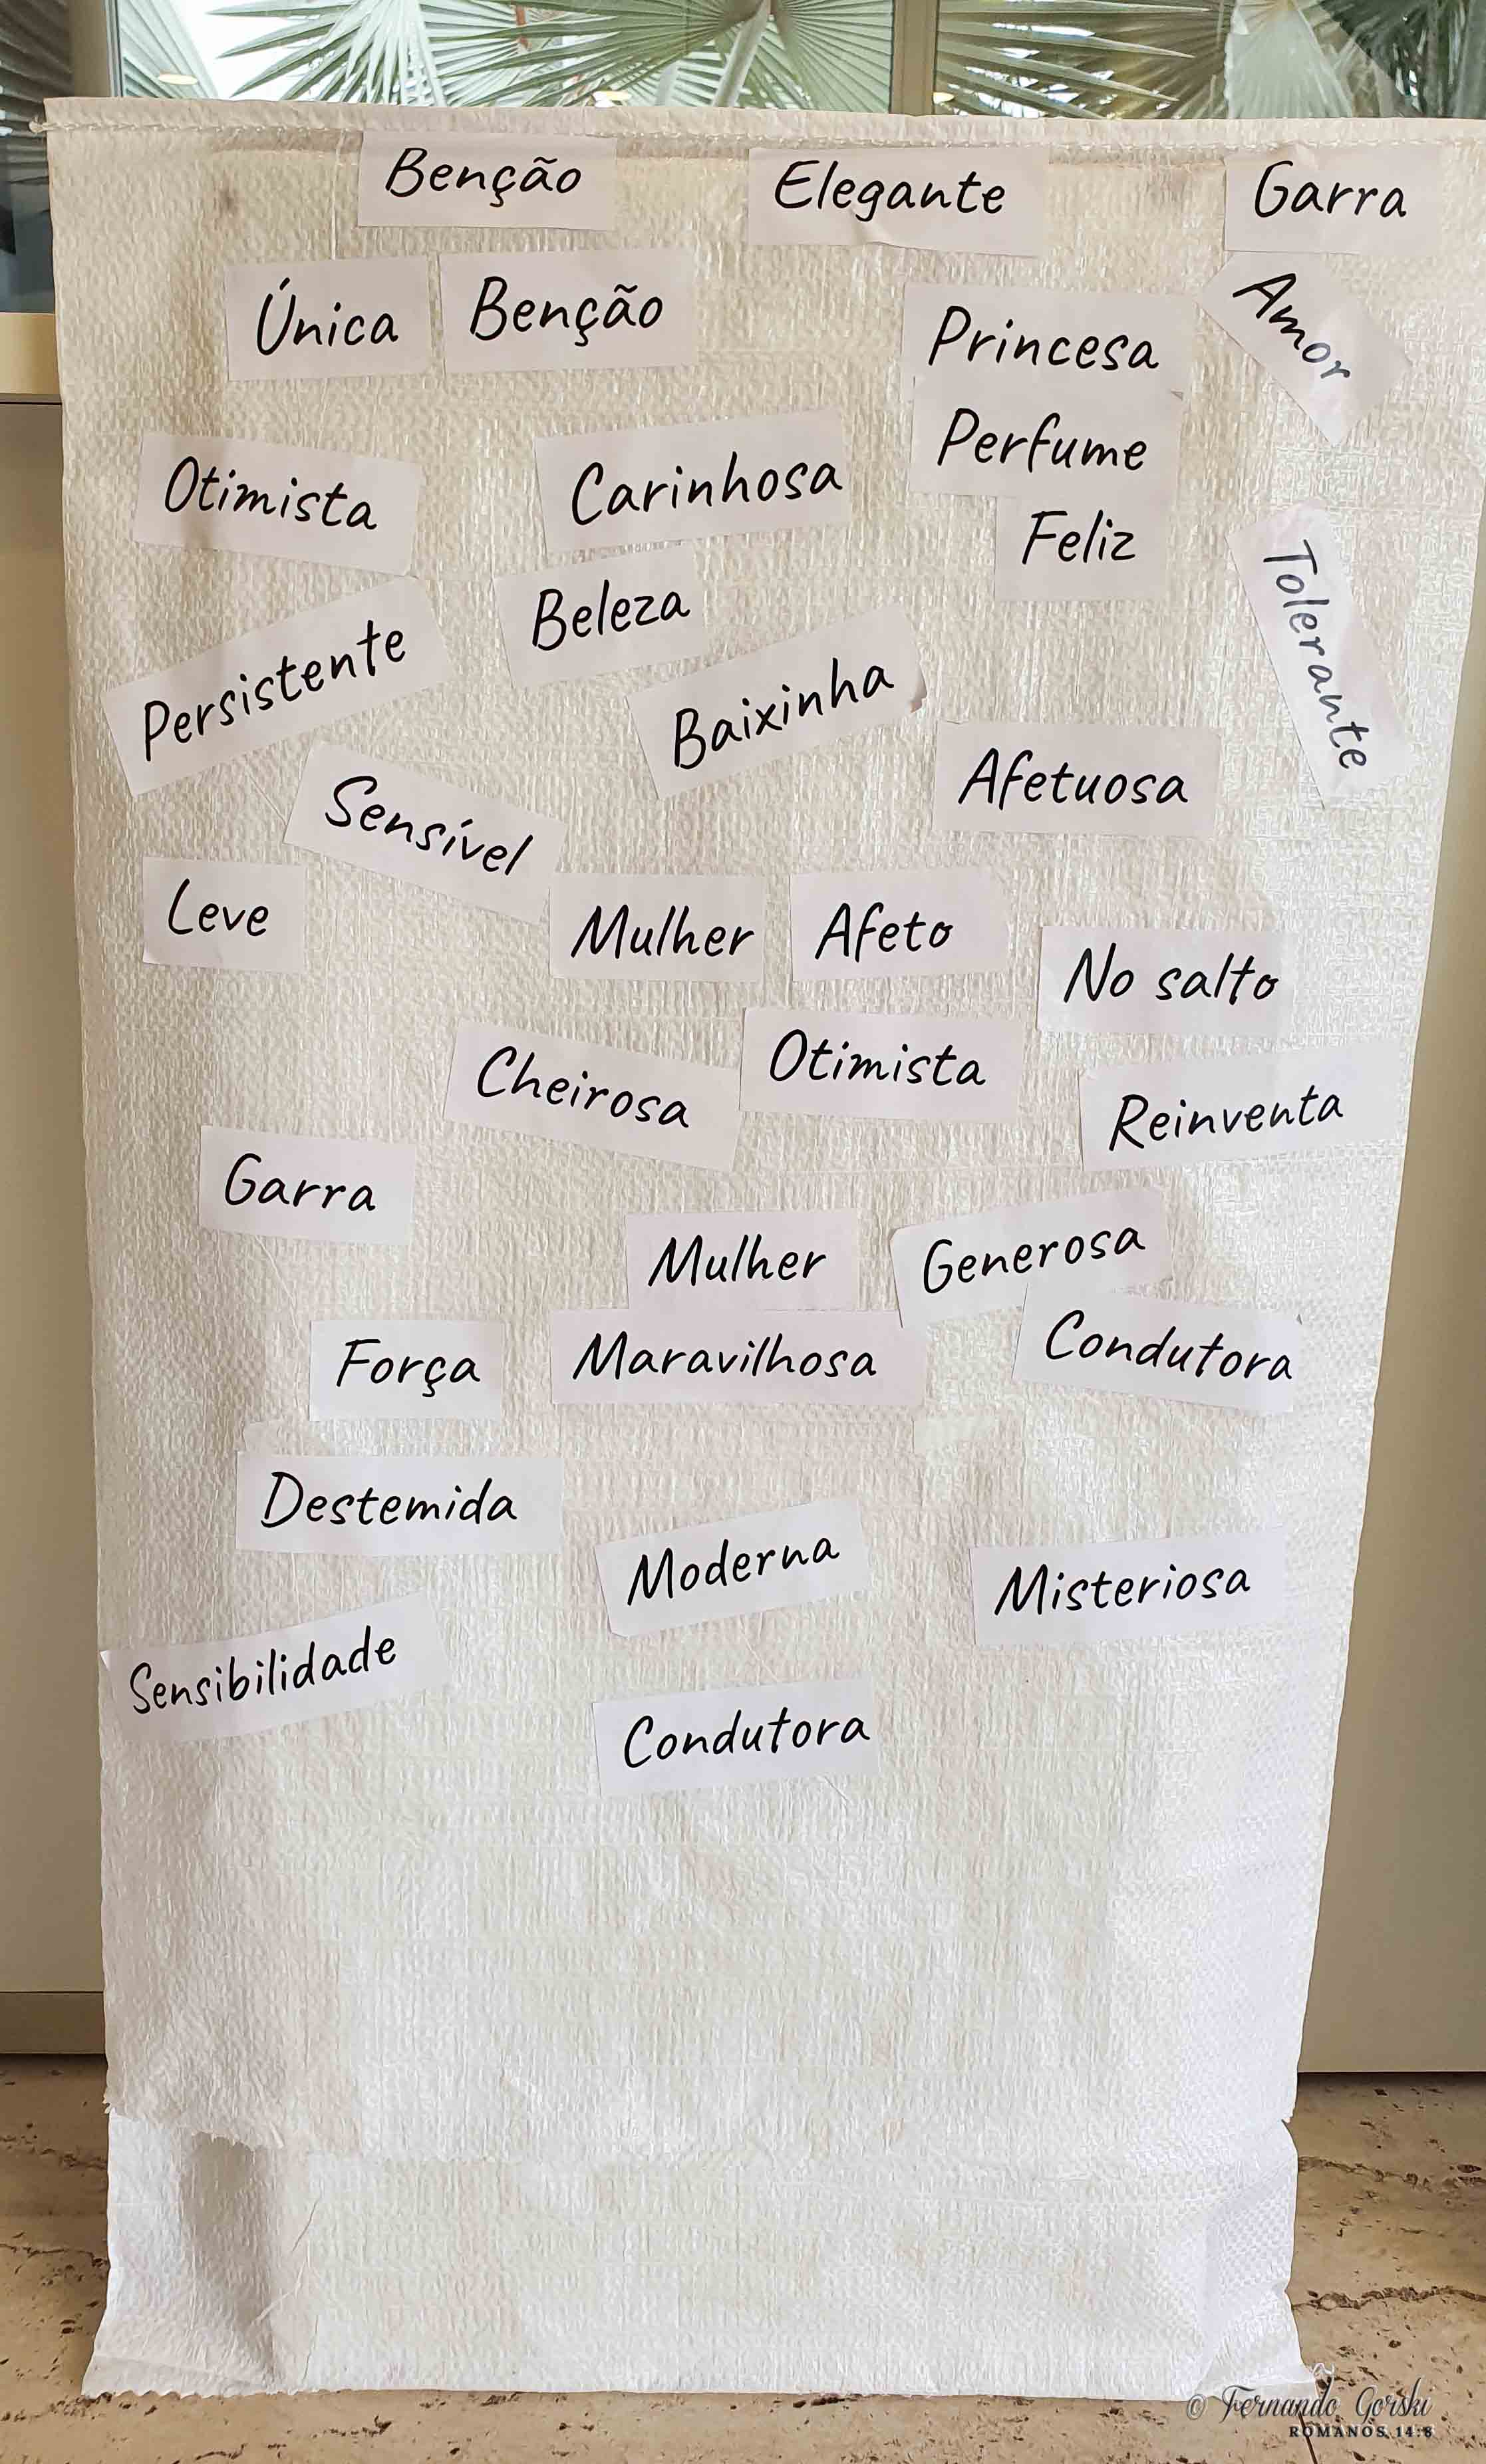 Benção
Elegante
Garra
Única
Benção
Princesa
Amor
Perfume
Otimista
Carinhosa
Feliz
Tolerante
Beleza
Persistente
Baixinha
Afetuosa
Sensível
Leve
Mulher
Afeto
No salto
Cheirosa
Otimista
Reinventa
Garra
Mulher
Generosa
Força
Maravilhosa
Condutora
Destemida
Moderna
Misteriosa
Sensibilidade
Condutora
© Fernando Gorski
ROMANOS 14:8